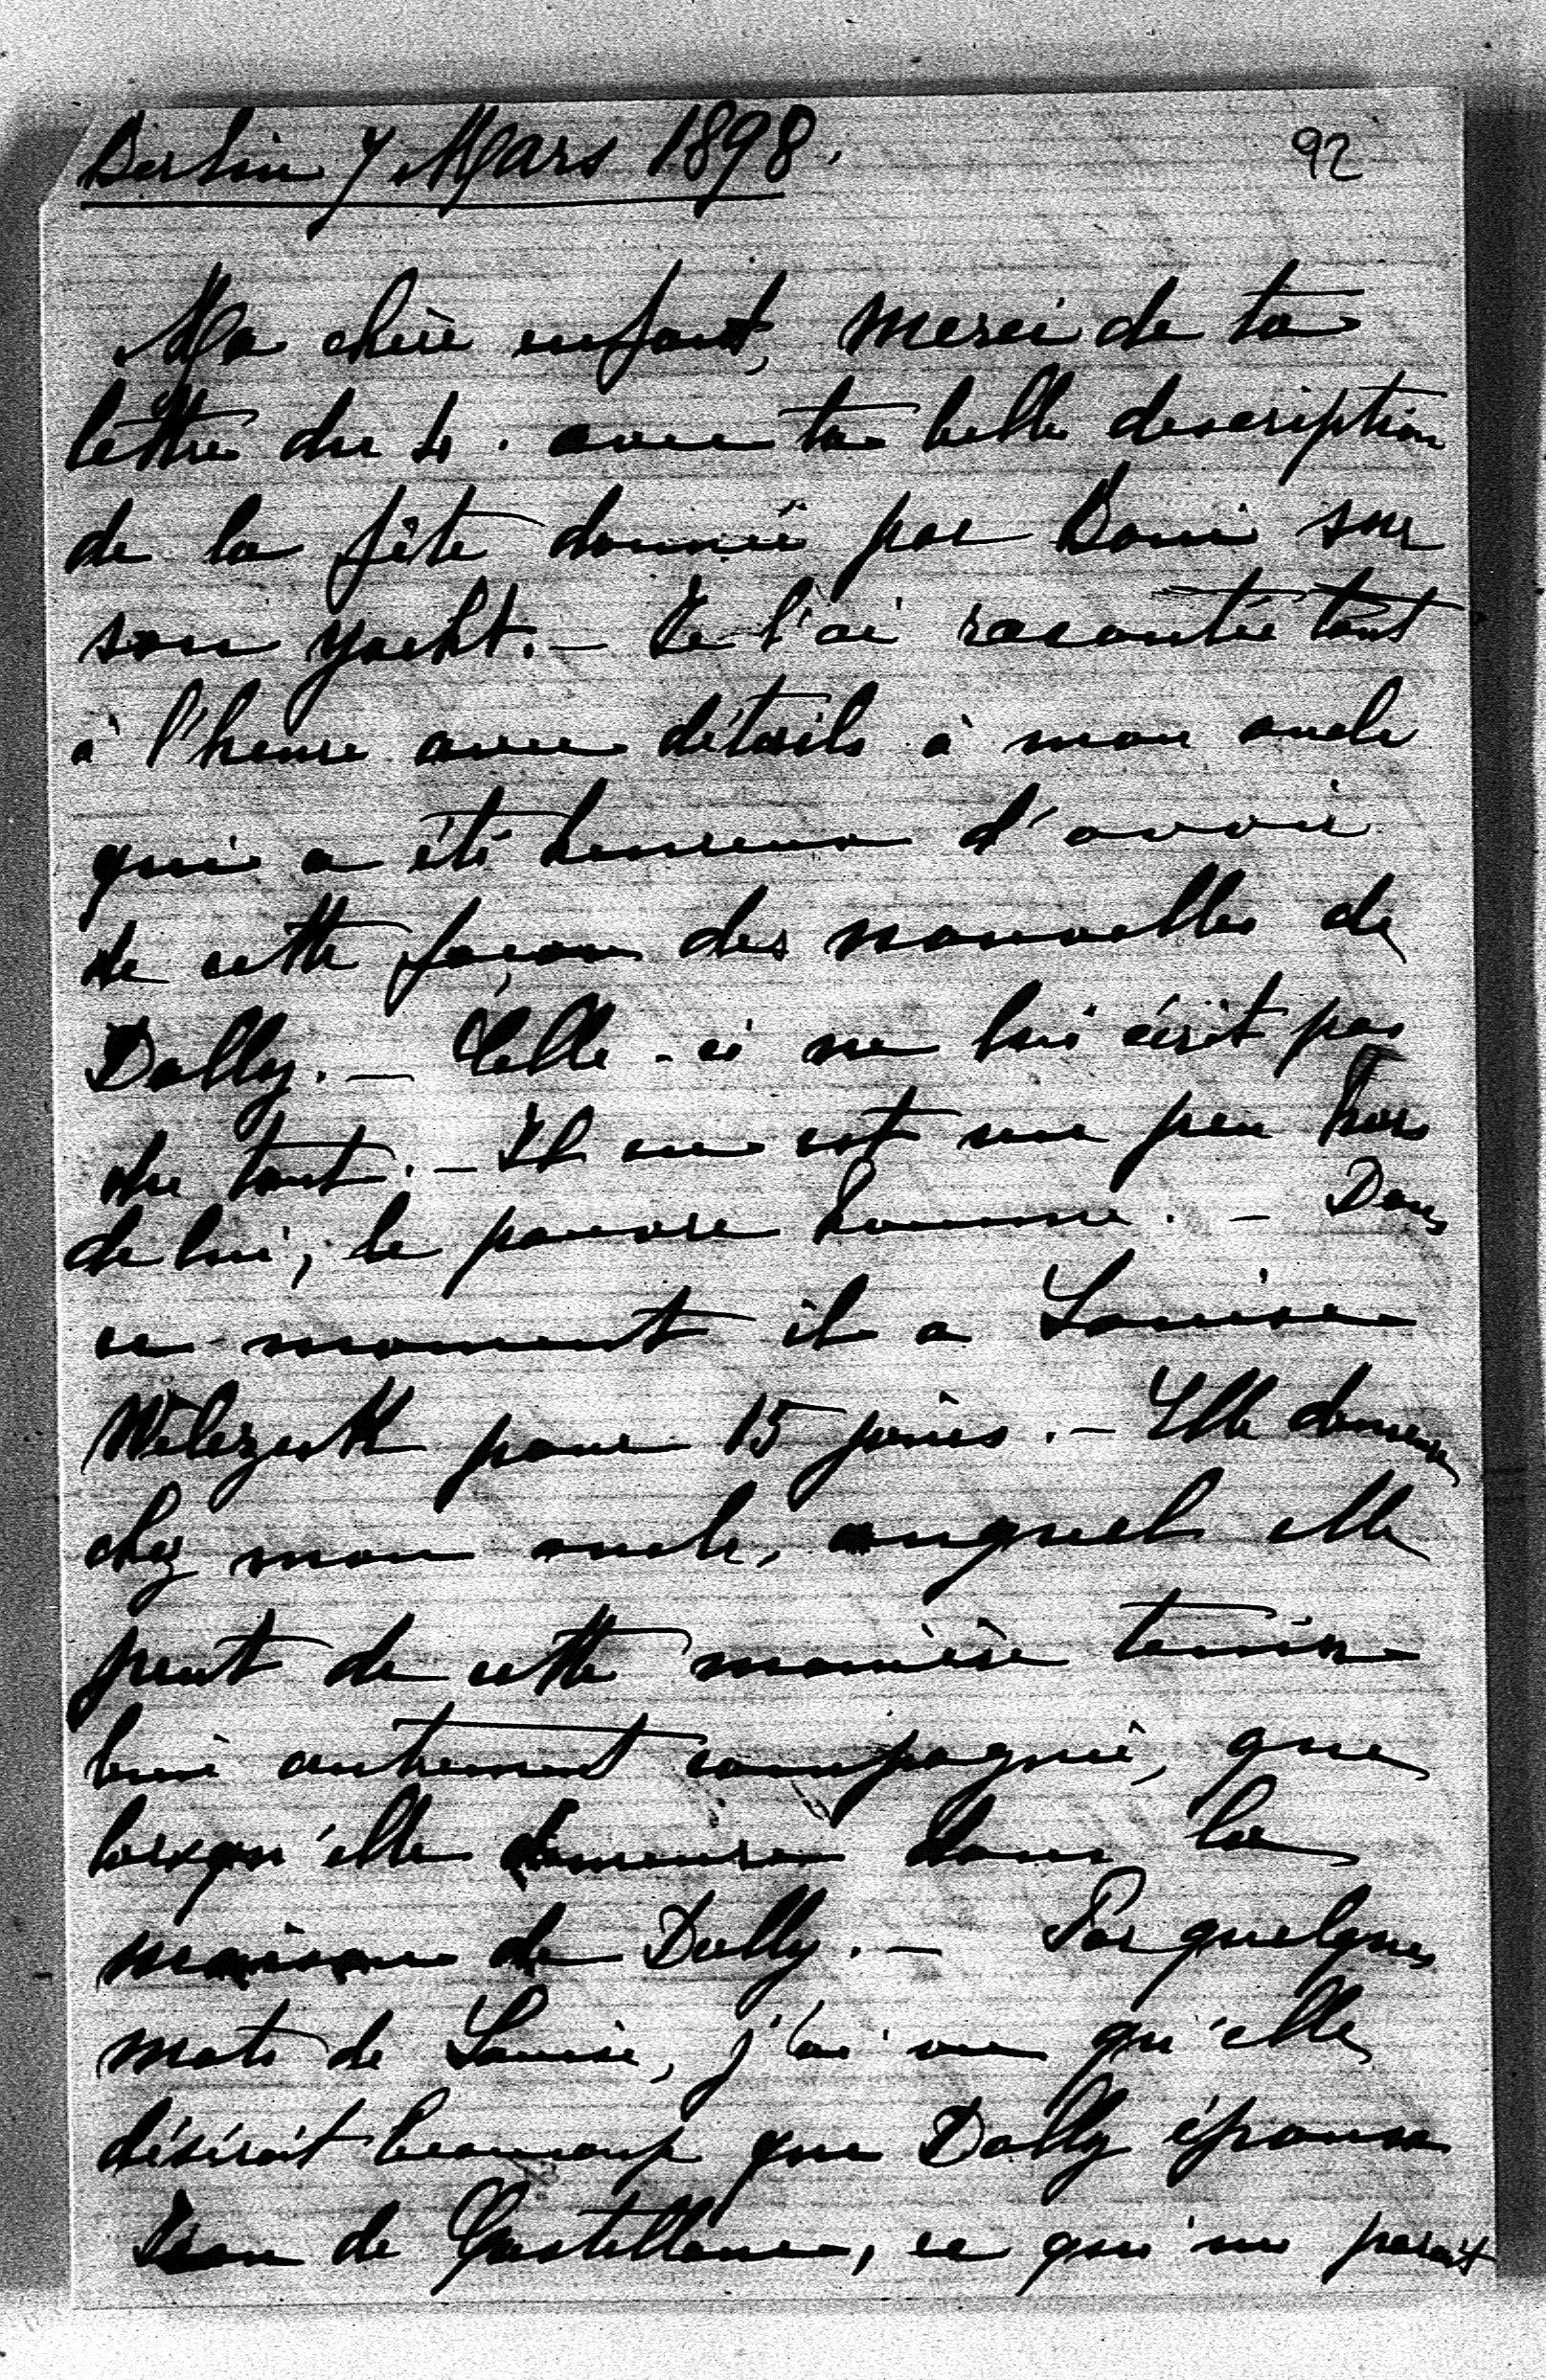 Berlin 7 Mars 1898.
92
Ma chère enfant, merci de ta
lettre du 4. avec ta belle description
de la fête donnée par Boni sur
son yacht. – Je l'ai racontée tout
à l'heure avec détails à mon oncle
qui a été heureux d'avoir
de cette façon des nouvelles de
Dolly. – Celle-ci ne lui écrit pas
du tout. – Il en est un peu hors
de lui, le pauvre homme. – Dans
ce moment il a Louise
Wilczek pour 15 jours. – Elle demeure
chez mon oncle, auquel elle
peut de cette manière tenir
bien autrement compagnie, que
lorsqu'elle demeure dans la
maison de Dolly. – Par quelques
mots de Louise, j'ai vu qu'elle
désirait beaucoup que Dolly épouse
Jean de Castellane, ce qui me parait